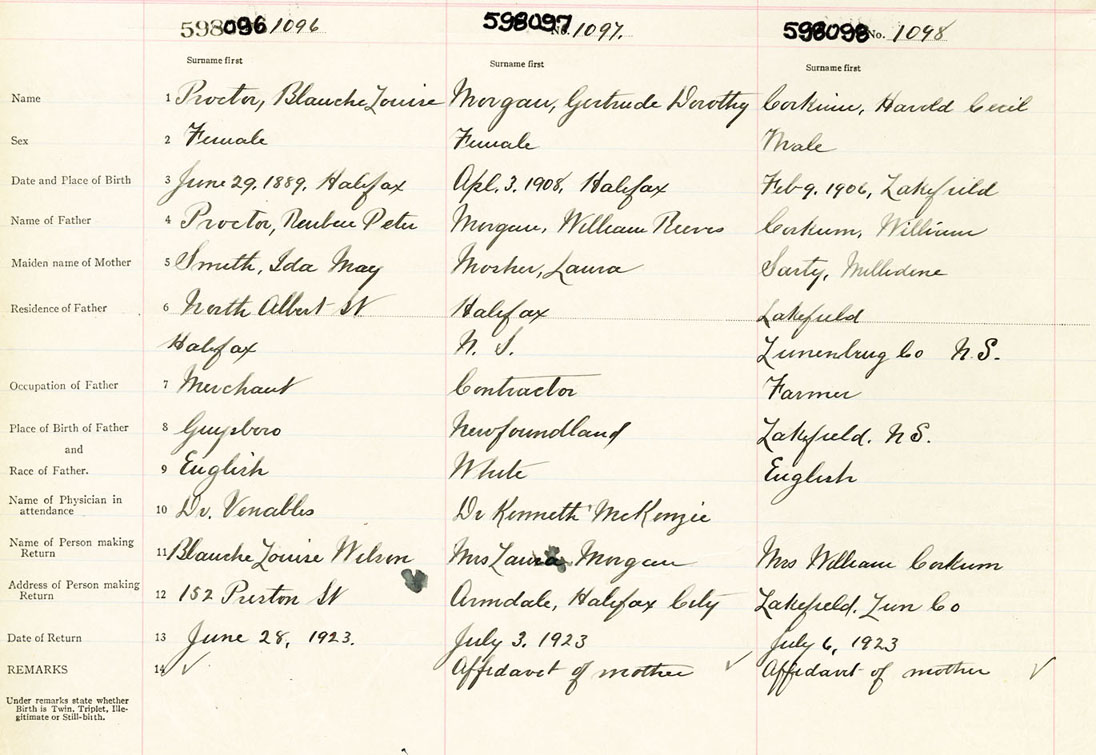 598096 1096 598097 No. 1097. 598098 No. 1098
Surname first Surname first Surname first
Name 1 Proctor, Blanche Louise Morgan, Gertrude Dorothy Corkum, Harold Cecil
Sex 2 Female Female Male
Date and Place of Birth 3 June 29, 1889, Halifax Apl. 3. 1908, Halifax Feb 9. 1906, Lakefield
Name of Father 4 Proctor, Reuben Peter Morgan, William Reeves Corkum, William
Maiden name of Mother 5 Smith, Ida May Mosher, Laura Sarty, Millidene
Residence of Father 6 North Albert St Halifax Lakefield
Halifax N. S. Lunenbrug Co N.S.
Occupation of Father 7 Merchant Contractor Farmer
Place of Birth of Father 8 Guysboro Newfoundland Lakefield. N.S.
and
Race of Father. 9 English White English
Name of Physician in
attendance 10 Dr. Venables Dr Kenneth McKenzie
Name of Person making
Return 11 Blanche Louise Wilson Mrs Laura Morgan Mrs William Corkum
Address of Person making
Return 12 152 Preston St Armdale, Halifax City Lakefield. Lun Co
Date of Return 13 June 28, 1923. July 3. 1923 July 6, 1923
REMARKS 14 ✓ Affidavit of mother ✓ Affidavit of mother ✓
Under remarks state whether
Birth is Twin. Triplet, Ille-
gitimate or Still-birth.